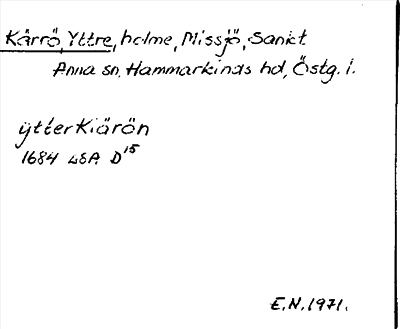 Kärrö, Yttre, holme, Missjö, Sankt
Anna sn, Hammarkinds hd, Östg. l.
ÿtterKiärön
1684 LSA D¹⁵
E.N. 1971.